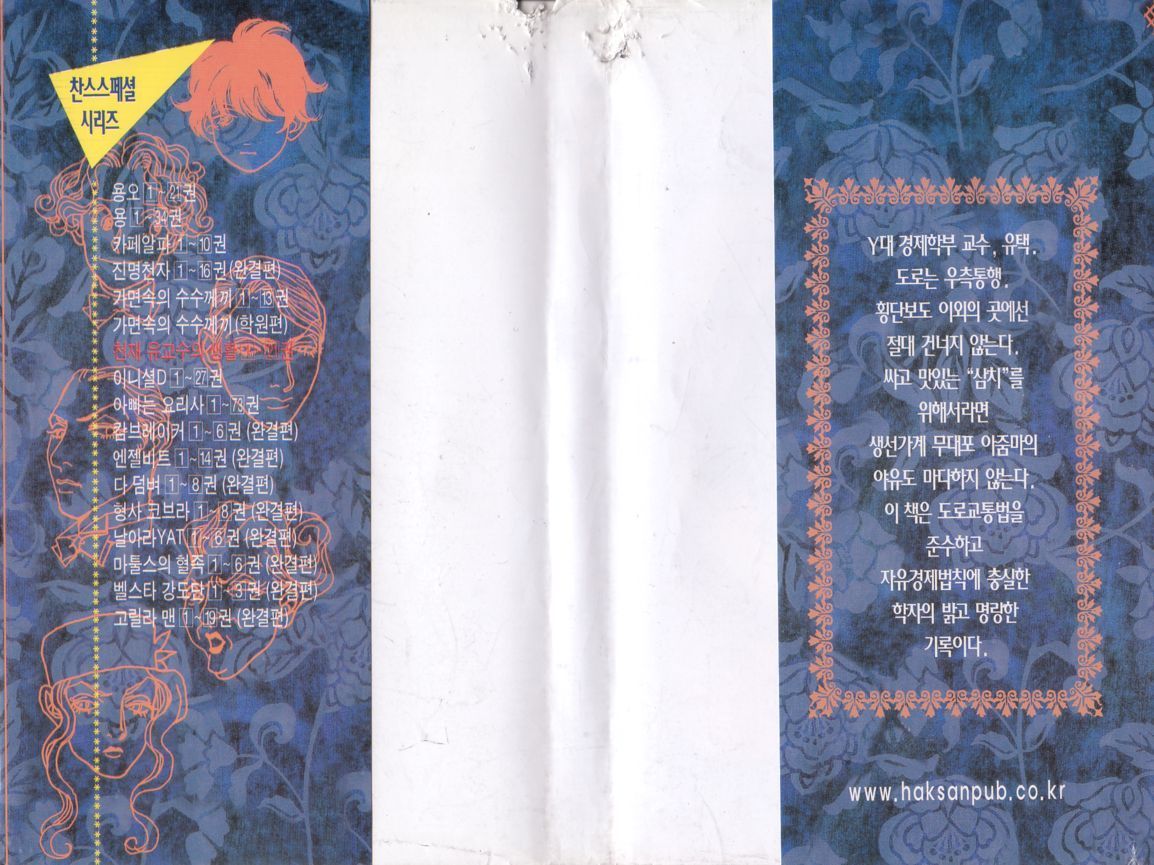 찬스스페셜
시리즈
용오 1~21권
용 1~34권
카페알파 1~10권
진명천자 1~16권 (완결편)
가면속의 수수께끼 1~13권
가면속의 수수께끼 (학원편)
천재 유교수의 생활
이니셜D 1~27권
아빠는 요리사 1~73권
캄브레이커 1~6권 (완결편)
엔젤비트 1~14권 (완결편)
다 덤벼 1~8권 (완결편)
형사 코브라 1~8권 (완결편)
날아라YAT 1~6권 (완결편)
마툴스의 혈족 1~6권 (완결편)
벨스타 강도단 1~3권 (완결편)
고릴라 맨 1~19권 (완결편)
Y대 경제학부 교수, 유택.
도로는 우측통행.
횡단보도 이외의 곳에선
절대 건너지 않는다.
싸고 맛있는 “삼치”를
위해서라면
생선가게 무대포 아줌마의
야유도 마다하지 않는다.
이 책은 도로교통법을
준수하고
자유경제법칙에 충실한
학자의 밝고 명랑한
기록이다.
www.haksanpub.co.kr